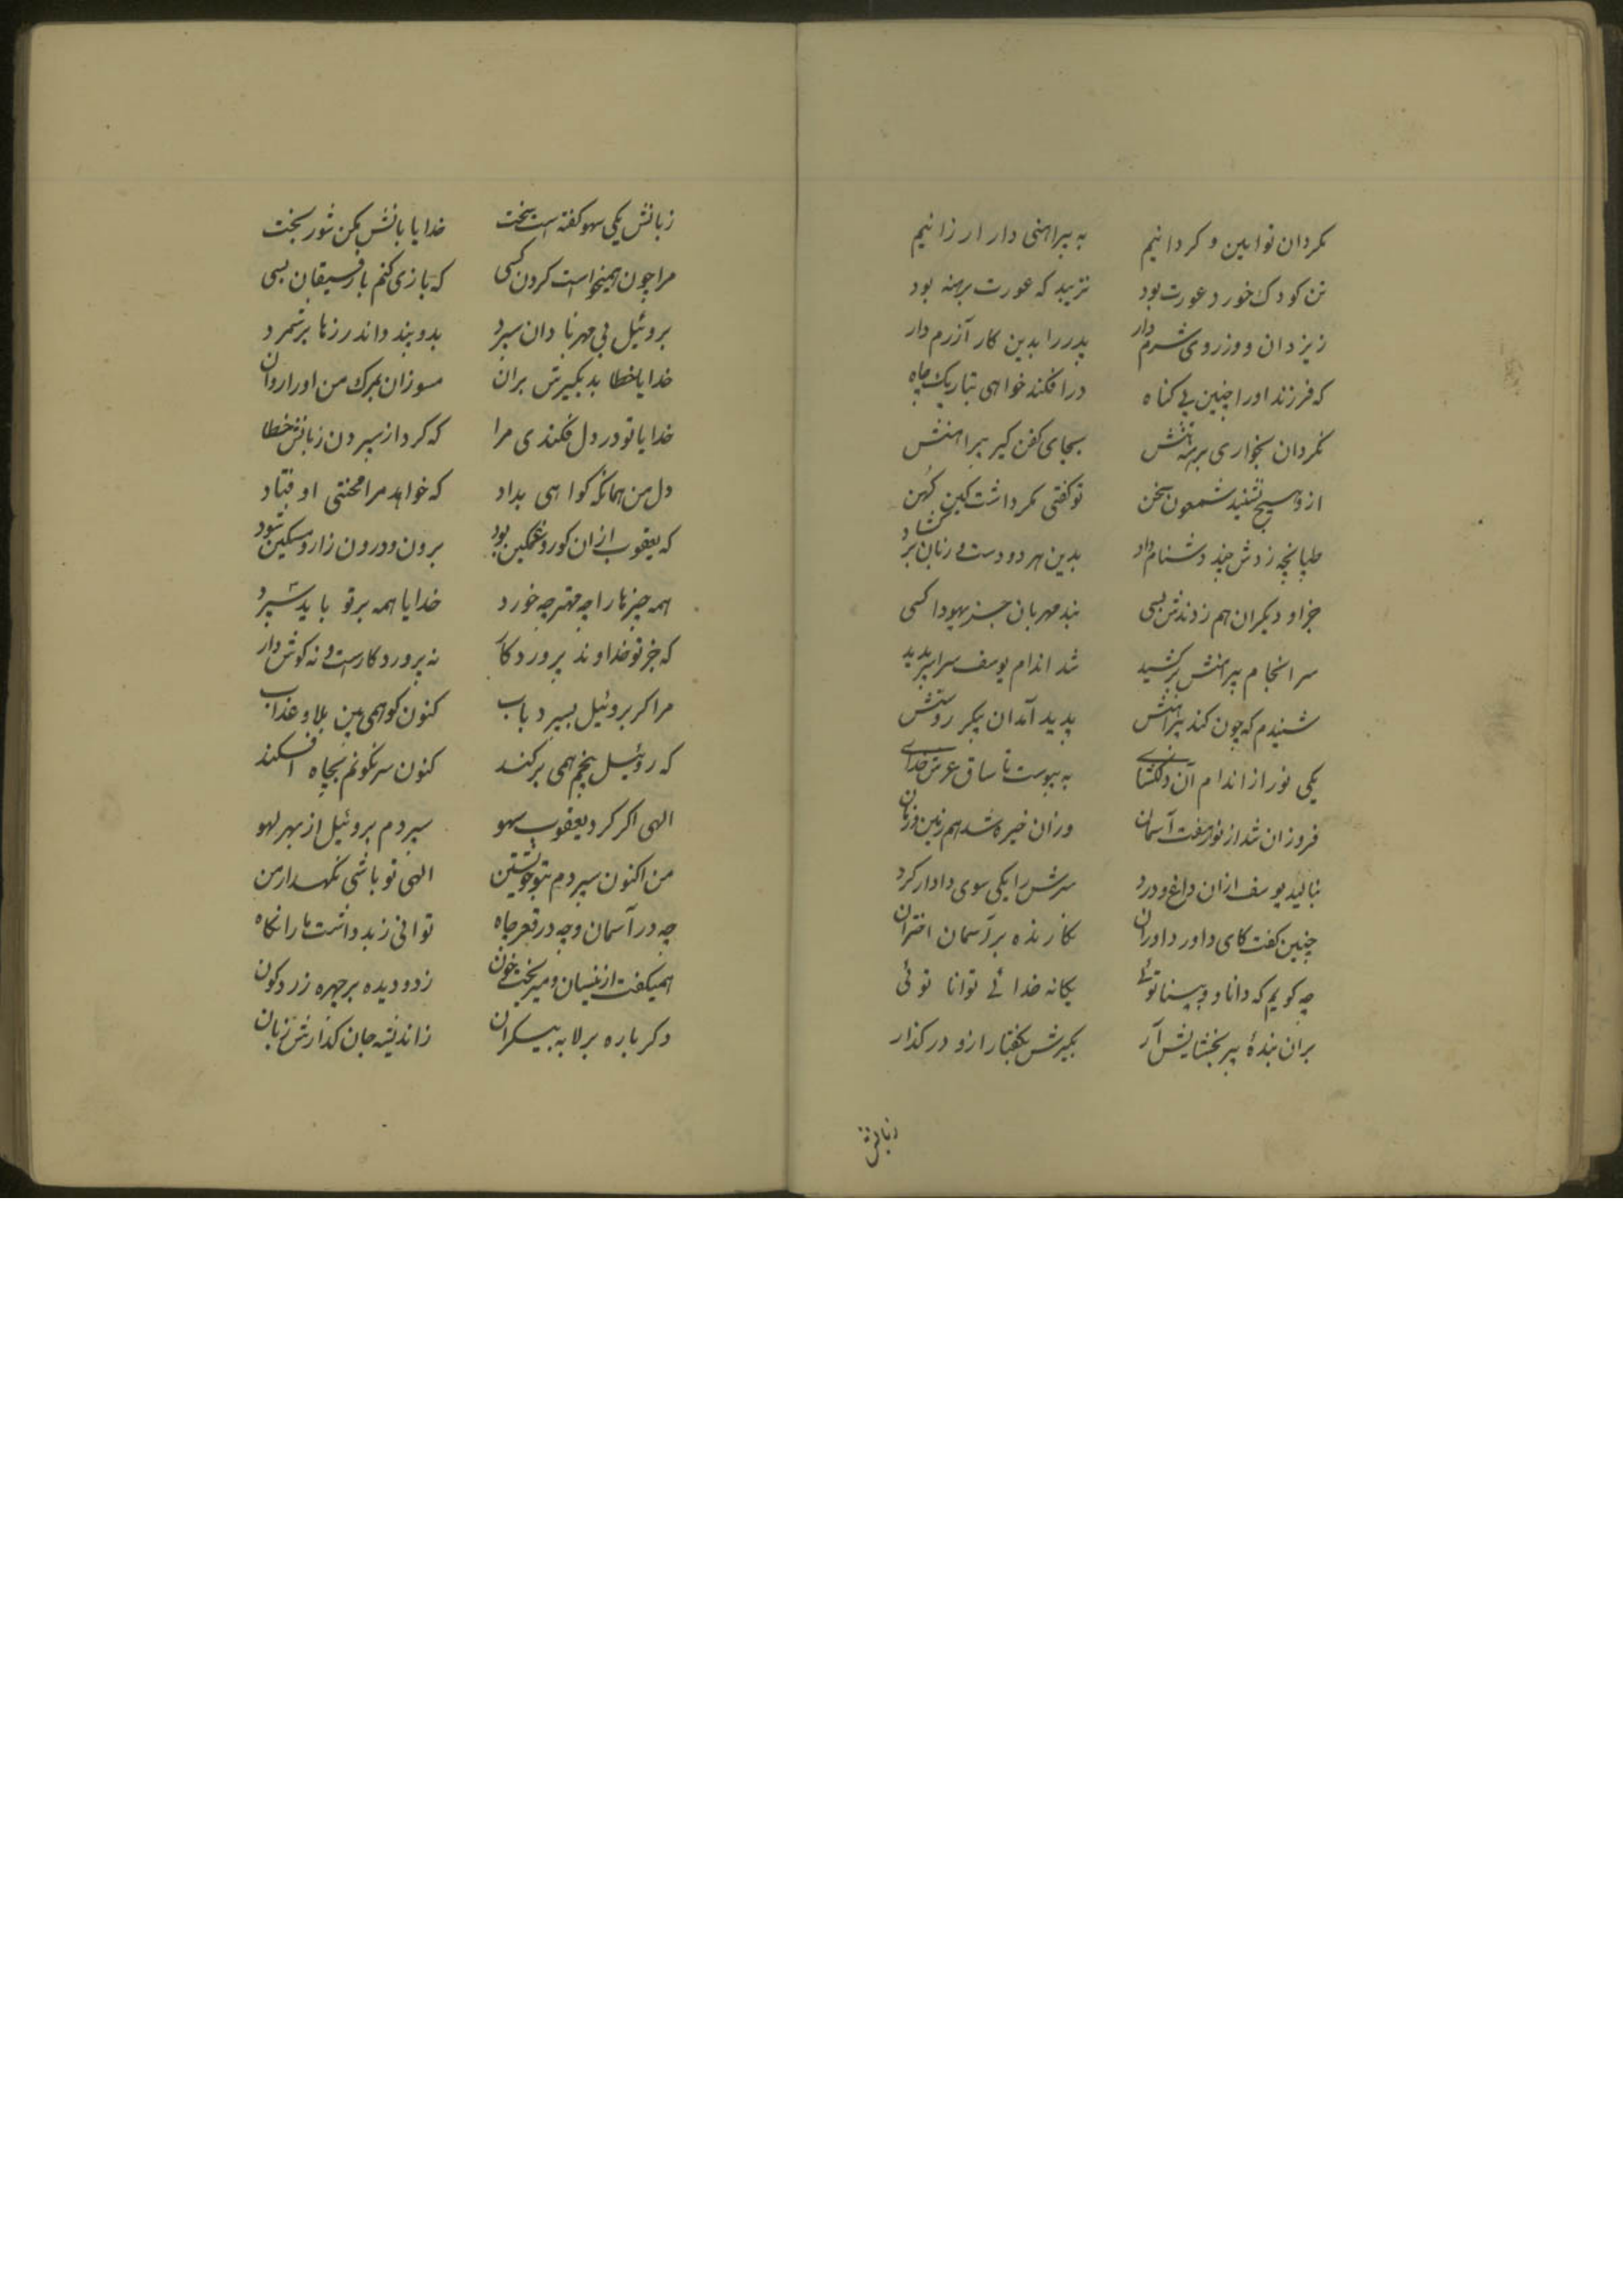 مکردان تو ابین و کردانیم به پیراهنی دار ارزانیم
تن کودک خورد عورت بود نزیبد که عورت برهنه بود
زیزدان و وز روی شرم دار پدر را بدین کار آزرم دار
که فرزند او را چنین بی کناه درافکند خواهی بتاریک چاه
مکردان بخواری برهنه تنش بجای کفن کیر پیراهنش
ازو هیچ نشنید شمعون سخن تو کفتی مکر داشت کین کهن
طپانچه زدش چند و دشنام داد بدین هر دو دست و زبان برکشاد
جز او دیکران هم زدندش بسی نبد مهربان جز یهودا کسی
سرانجام پیراهنش برکشید شد اندام یوسف سراسر پدید
شنیدم که چون کند پیراهنش پدید آمد آن پیکر روشنش
یکی نور از اندام آن دلکشای به پیوست تا ساق عرش خدای
فروزان شد از نور هفت آسمان وزان خیره شد هم زمین و زمان
بنالید یوسف ازان داغ و درد سرش را یکی سوی دادار کرد
چنین کفت کای داور داوران نکارنده بر آسمان اختران
چه کویم که دانا و بینا توئی یکانه خدائی توانا توئی
بران بندهٔ پیر بخشایش آر مکیرش بکفتار ازو درکذار
زبانش
زبانش یکی سهو کفته است سخت خدایا بدانش مکن شوربخت
مرا چون همیخواست کردن کسی که بازی کنم با رفیقان بسی
بروئیل بی مهر نادان سپرد بدو پند و اندرزها برشمرد
خدایا خطا بد مکیرش بران مسوزان بمرک من او را روان
خدایا تو در دل فکندی مرا که کرد از سپردن زبانش خطا
دل من همانکه کواهی بداد که خواهد مرا محنتی اوفتاد
که یعقوب ازان کور و غمکین بود برون و درون زار و مسکین شود
همه چیزها را چه مهتر چه خورد خدایا همه بر تو باید شمرد
که جز تو خداوند پروردکار نه پروردکارست و نه کوش دار
مرا کر بروئیل بسپرد باب کنون کو همی بین بلا و عذاب
که روئیل بیخم همی برکند کنون سرنکونم بچاه افکند
الهی اکر کرد یعقوب سهو سپردم بروئیل از بهر لهو
من اکنون سپردم بتو خویشتن الهی تو باشی نکهدار من
چه در آسمان و چه در قعر چاه توانی ز بد داشت ما را نکاه
همیکفت ازینسان و میریخت خون ز دو دیده بر چهره زردکون
دکر باره بر لابه بیکران ز اندیشه جان کذارش زبان